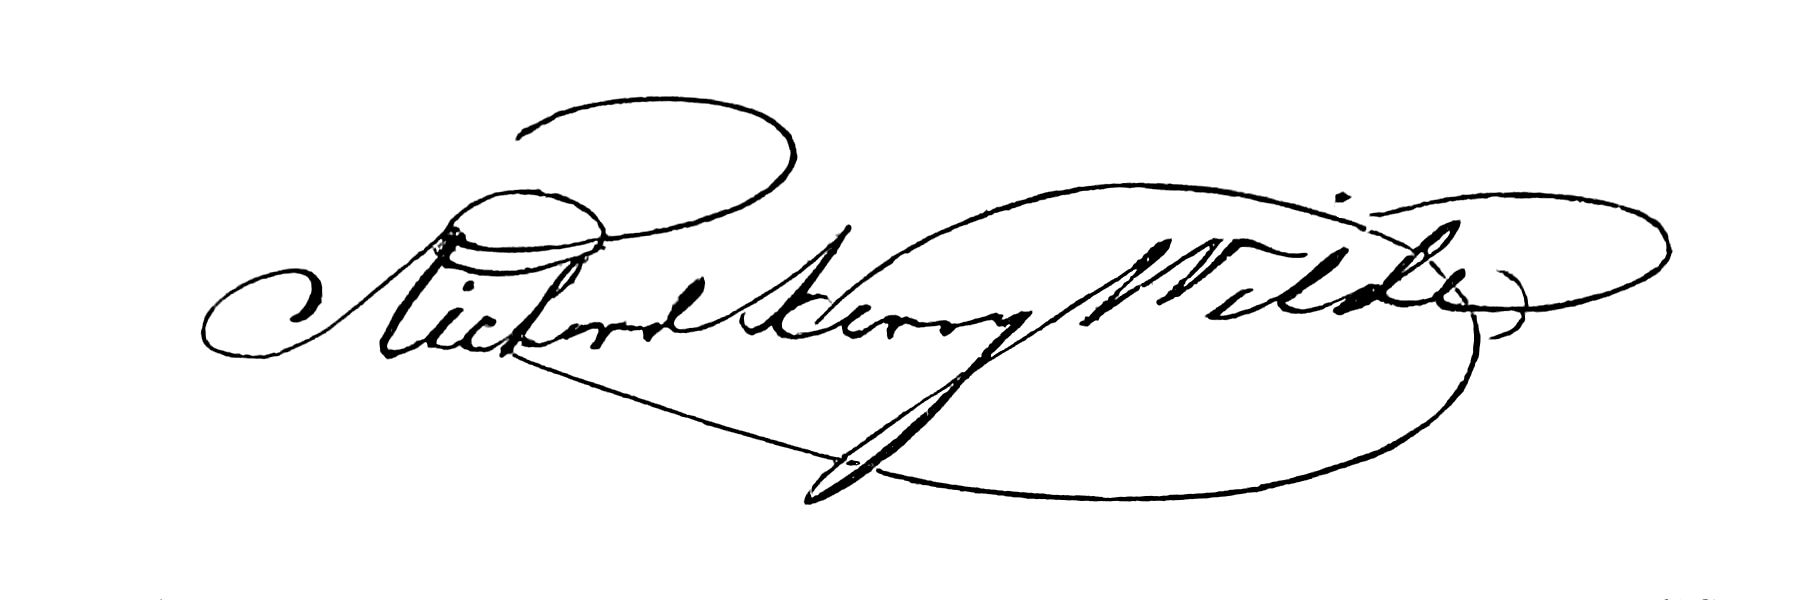 Richard Henry Wilde